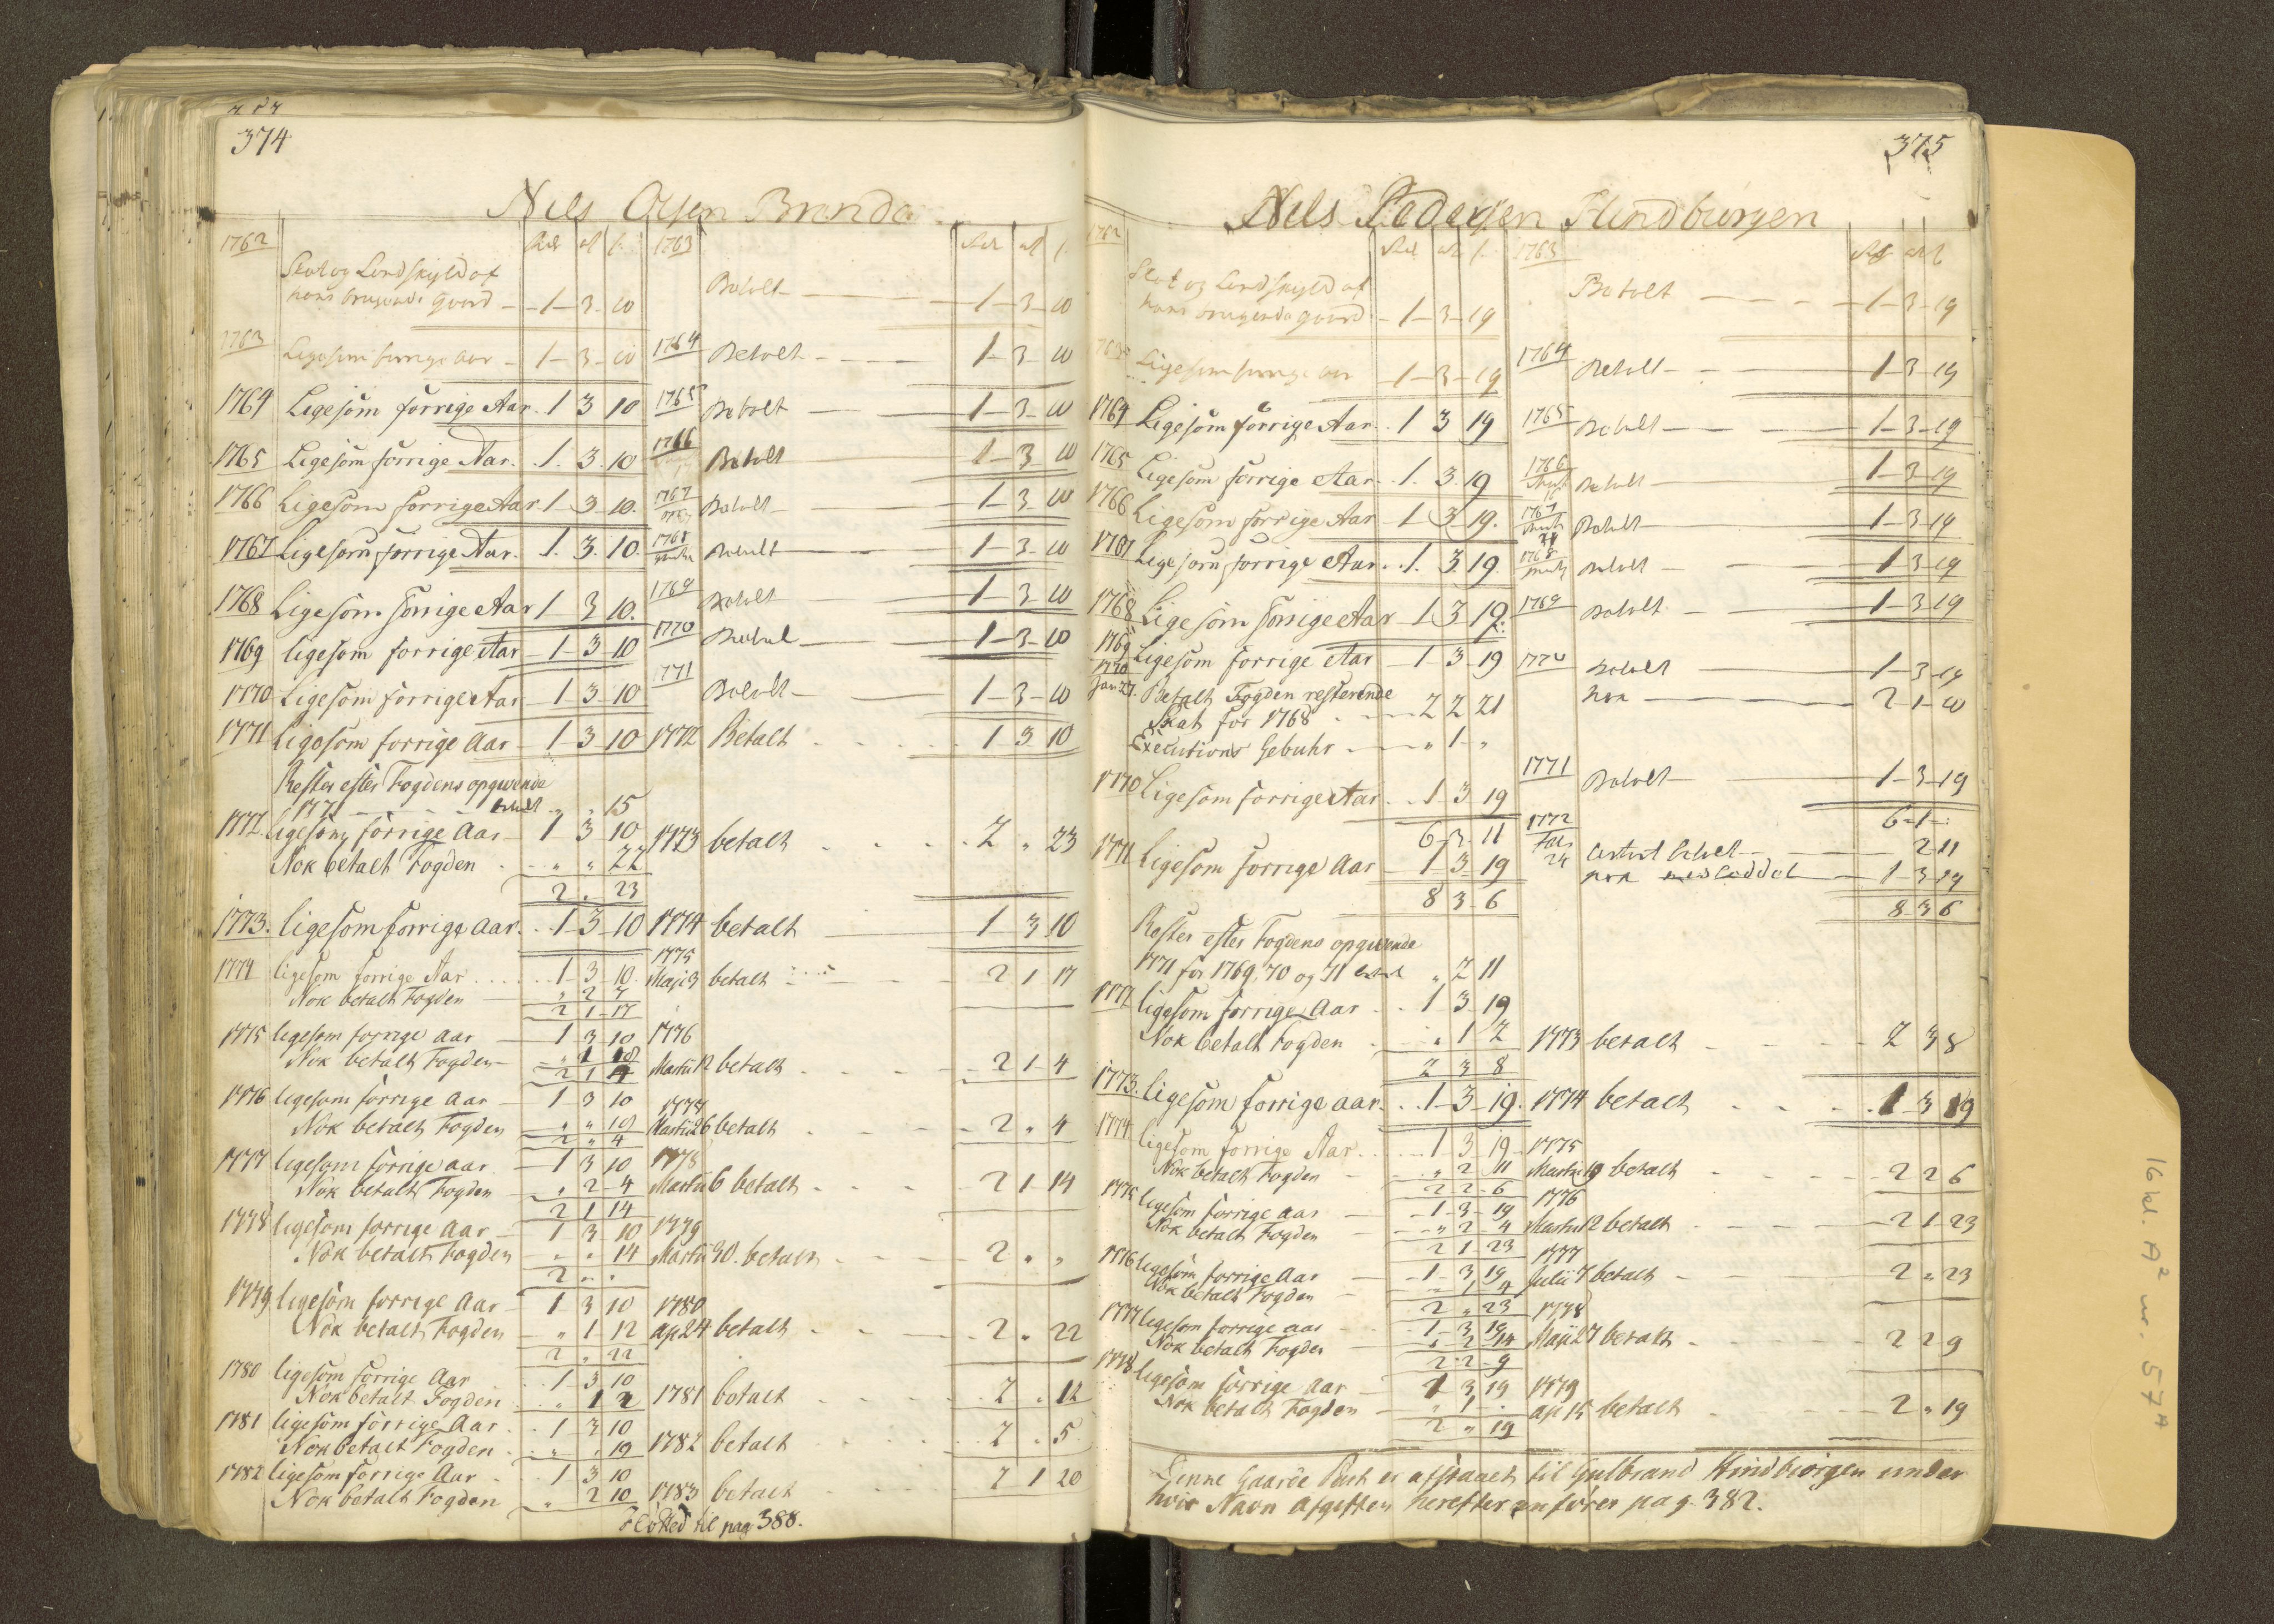 374
Nels Olsen Brnnda
1762 Rdr ort s. 1763 Rdr ort s.
Skat og Landskyld af
hans brugende Gaard - 1 - 3 - 10 Betalt - 1 - 3 - 10
1763 Ligesom forrige Aar - 1 - 3 - 10 1764 Betalt - 1 - 3 - 10
1764 Ligesom forrige Aar. 1 3 10 1765 Betalt - 1 - 3 - 10
1765 Ligesom forrige Aar. 1. 3. 10 1766 Betalt 1 - 3 10
1766 Ligesom forrige Aar 1 - 3 - 10. 1767 Betalt - 1 - 3 - 10
1767 Ligesom forrige Aar. 1. 3. 10. 1768 Betalt - 1 - 3 - 10
1768 Ligesom forrige Aar 1 - 3 10. 1769 Betalt 1 - 3 - 10
1769 ligesom forrige Aar - 1 - 3 - 10 1770 Betal - 1 - 3 - 10
1770 Ligesom forrige Aar - 1 - 3 - 10 1771 Betalt - 1 - 3 - 10
1771 Ligesom forrige Aar - 1 - 3 10 1772 Betalt 1 3 10
Rester efter Fogdens opgivende
1771 - betalt " " 15
1772. ligesom forrige Aar - 1 3 10 1773 betalt 2 " 23
Nok betalt Fogden " " 22
2 " 23
1773. ligesom forrige Aar. 1 - 3 - 10 1774 betalt 1 3 10
1774 ligesom forrige Aar 1 - 3 - 10. 1775
Nok betalt Fogden " 2 7 Maji 3 betalt 2 1 17
2 1 - 17
1775 ligesom forrige Aar - 1 3 10 1776
Nok betalt Fogden - " 1 18 Martii 12 betalt 2 1 4
2 1 4
1776 ligesom forrige Aar - 1 - 3 10 1777
Nok betalt Fogden " " 18 Martii 26 betalt 2 " 4
2 " 4
1777 ligesom forrige Aar - 1 3 10 1778
Nok betalt Fogden " 2 - 4 Martii 6 betalt 2 1 14
2 1 14
1778 ligesom forrige Aar - 1 3 10 1779
Nok betalt Fogden " " 14 Martii 30. betalt 2 " "
2 " "
1779 ligesom forrige Aar - 1 3 10 1780
Nok betalt Fogden - " 1 - 12 ap 24 betalt 2 " 22
2 " 22
1780 ligesom forrige Aar 1 - 3 10
Nok betalt Fogden " 1 2 1781 betalt 2 " 12
1781 ligesom forrige Aar 1 - 3 10
Nok betalt Fogden " " 19 1782 betalt 2 " 5
1782 ligesom forrige Aar - 1 3 10
Nok betalt Fogden " 2 10 1783 betalt 2 1 20
til pag 388.
375
Nels Pedersen Hindbürgen
1762 Rdr ort s. 1763
Skat og Landskyld af
hans brugende Gaard - 1 - 3 - 19 Betalt - 1 - 3 - 19
1763 Ligesom forrige Aar - 1 - 3 - 19 1764 Betalt - 1 - 3 - 19
1764 Ligesom forrige Aar. 1 3 19 1765 Betalt - 1 - 3 - 19
1765 Ligesom forrige Aar. 1. 3. 19 1766 Betalt - 1 - 3 - 19
1766 Ligesom forrige Aar - 1 - 3 - 19. 1767 Betalt - 1 - 3 - 19
1767 Ligesom forrige Aar. 1. 3. 19. 1768 Betalt - 1 - 3 - 19
1768 Ligesom forrige Aar - 1. 3 19. 1769 Betalt - 1 - 3 - 19
1769 Ligesom forrige Aar - 1 - 3 - 19 1770 Betalt 1 - 3 - 19
1770 Jan 27. Betalt Fogden resterende nok - 2 - 1 - 10
Skat for 1768 2 2 21
Executions Gebuhr " 1 - "
1770 Ligesom forrige Aar 1 - 3 19 1771 Betalt - 1 - 3 - 19
6 - 2 - 11 6 - 1 -
1771 ligesom forrige Aar - 1 3 19 1772 24 betalt - 2 11
8 3 - 6 nok - 1 3 19
8 3 6
Rester efter Fogdens opgivende
1771 for 1769, 70 og 71 betalt " 2 11
1772 ligesom forrige Aar 1 3 - 19
Nok betalt Fogden " 1 2 1773 betalt 2 3 8
2 3 8
1773. ligesom forrige aar. 1 - 3 - 19. 1774 betalt 1 - 3 19
1774 ligesom forrige Aar 1 3 19 1775
Nok betalt Fogden " 2 11 Martii 19 betalt 2 2 6
2 2 - 6
1775 ligesom forrige Aar - 1 - 3 - 19 1776
Nok betalt Fogden - " 2 4 Martii 12 betalt 2 1 23
2 1 23
1776 ligesom forrige Aar 1 - 3 19 1777
Nok betalt Fogden " 1 4 Julii 7 betalt 2 " 23
2 " 23
1777 ligesom forrige aar 1 - 3 19 1778
Nok betalt Fogden " 2 14 Maji 27 betalt 2 2 9
2 2 9
1778 ligesom forrige Aar - 1 3 19 1779
Nok betalt Fogden " 1 - ap 15 betalt 2 " 19
2 " 19
Denne Gaarde Part er afstaaet til Gulbrand Hindbiorgen under
hvis Navn Afgiften herefter anføres pag. 382.
16 kl. A² nr. 57ª